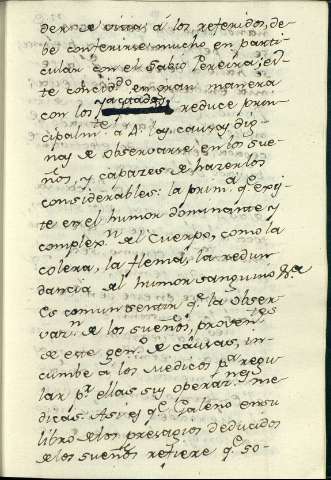 derse vistas à los referidos, de-
be conferirse mucho en parti-
cular con el Sabio Pereira; es-
te concid.do en gran manera
con los jactados reduce prin-
cipalm.te à 4.o las causas dig-
nas de observarse en los sue-
ños, y capazes de hazerlos
considerables: la prim.a q.e exis-
te en el humor dominante y
complex.n del Cuerpo, como la
colera, la flema, la redun
dancia del humor sanguino &.a
Es comun sentir q.e la obser-
vaz.n de los sueños, proven.tes
de este gen.o de causas, in-
cumbe à los Medicos p.a regu-
lar p.r ellas sus operaz.nes me-
dicas. Asi es q.e Galeno en su
libro de los presagios deducidos
de los sueños refiere q.e so-